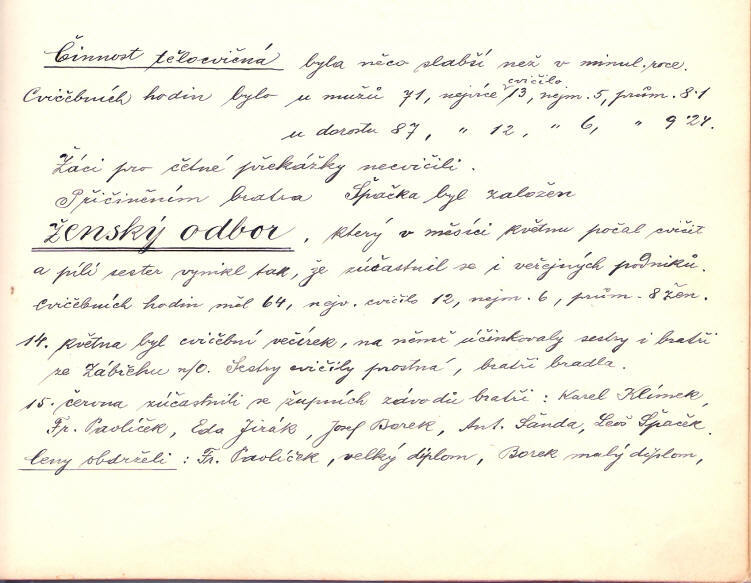 Činnost tělocvičná byla něco slabší než v minul. roce.
Cvičebních hodin bylo u mužů 71, nejvíce cvičilo 13, nejm. 5, prům. 8·1
u dorostu 87, " 12, " 6, " 9·24.
Žáci pro četné překážky necvičili.
Přičiněním bratra Špačka byl založen
Ženský odbor, který v měsíci květnu počal cvičit
a pílí sester vynikl tak, že zúčastnil se i veřejných podniků.
Cvičebních hodin měl 64, nejv. cvičilo 12, nejm. 6, prům. 8 žen.
14. května byl cvičební večírek, na němž účinkovaly sestry i bratři
ze Zábřehu n/O. Sestry cvičily prostná, bratři bradla.
15. června zúčastnili se župních závodů bratři: Karel Klímek,
Fr. Pavlíček, Eda Jirák, Josef Borek, Ant. Šanda, Leoš Špaček.
Ceny obdrželi: Fr. Pavlíček, velký diplom, Borek malý diplom,